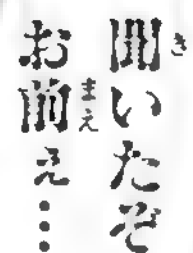 聞いたぞ
お前え…